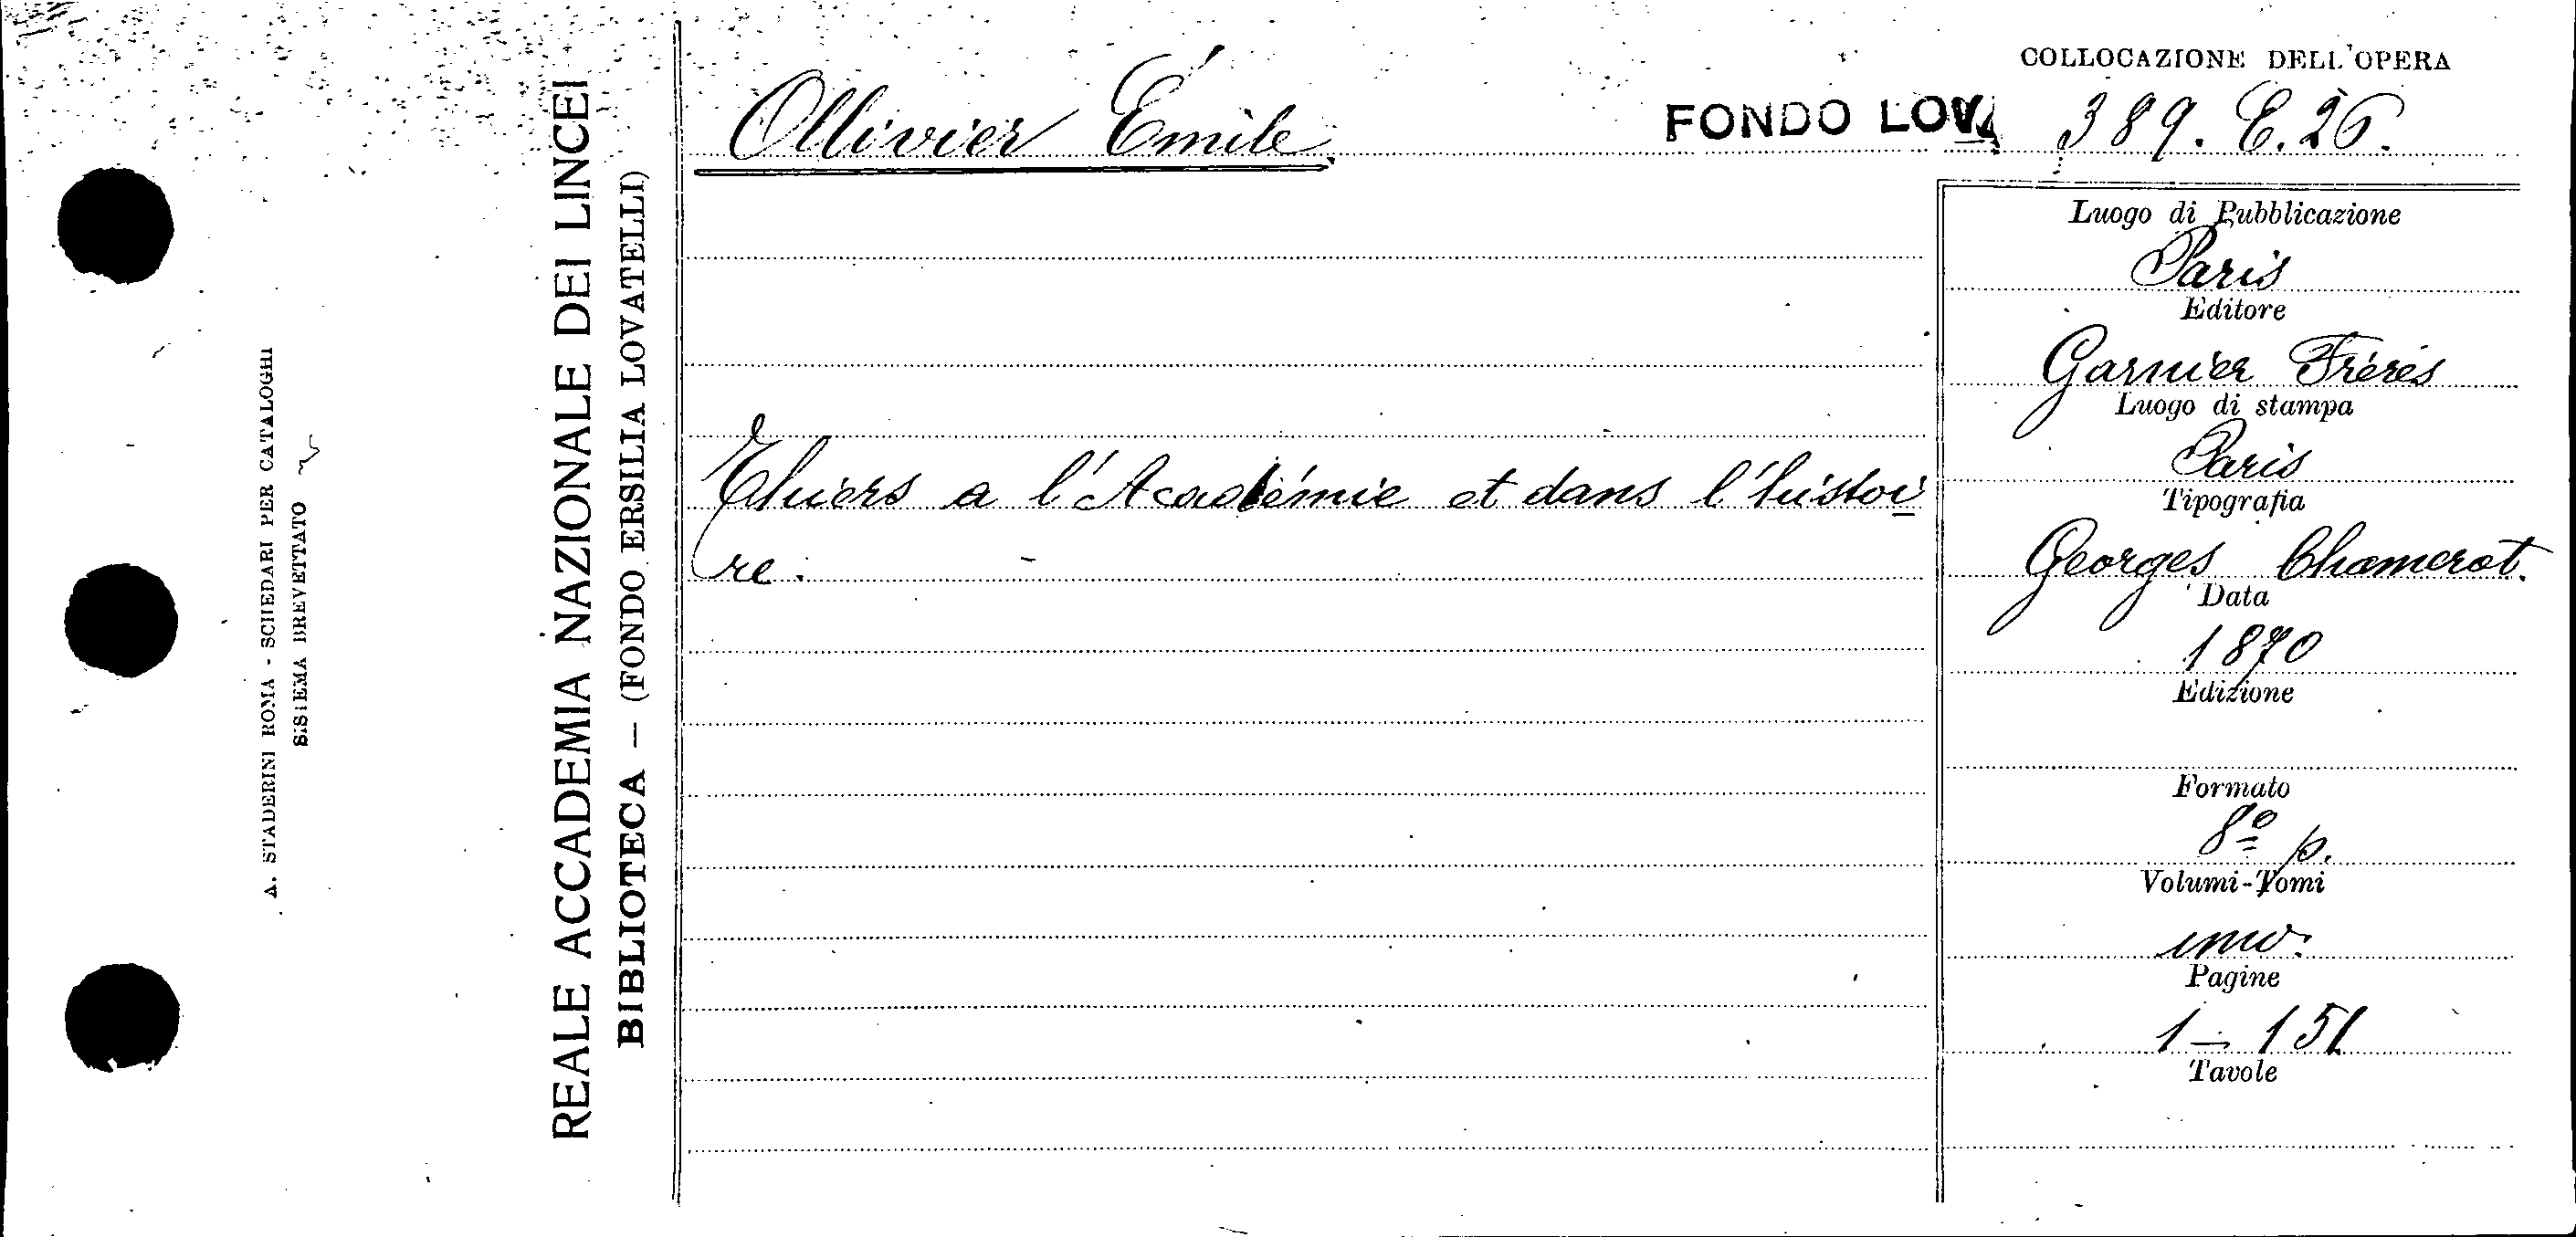 A. STADERINI ROMA - SCHEDARI PER CATALOGHI
SISTEMA BREVETTATO
REALE ACCADEMIA NAZIONALE DEI LINCEI
BIBLIOTECA — (FONDO ERSILIA LOVATELLI)
COLLOCAZIONE DELL'OPERA
Ollivier Émile.
FONDO LOV. 389. E. 26.
Thiers a l'Académie et dans l'histoi
re.
Luogo di Pubblicazione
Paris
Editore
Garnier Fréres
Luogo di stampa
Paris
Tipografia
Georges Chamerot.
Data
1870
Edizione
Formato
8º p.
Volumi-Tomi
uno.
Pagine
1 - 151
Tavole